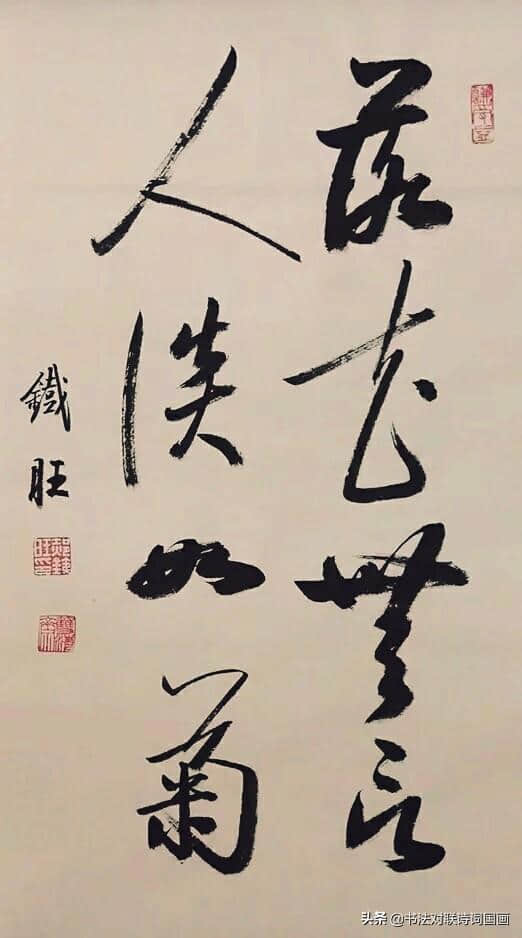 落花無言
人淡如菊
鐵旺
头条 @书法对联诗词国画